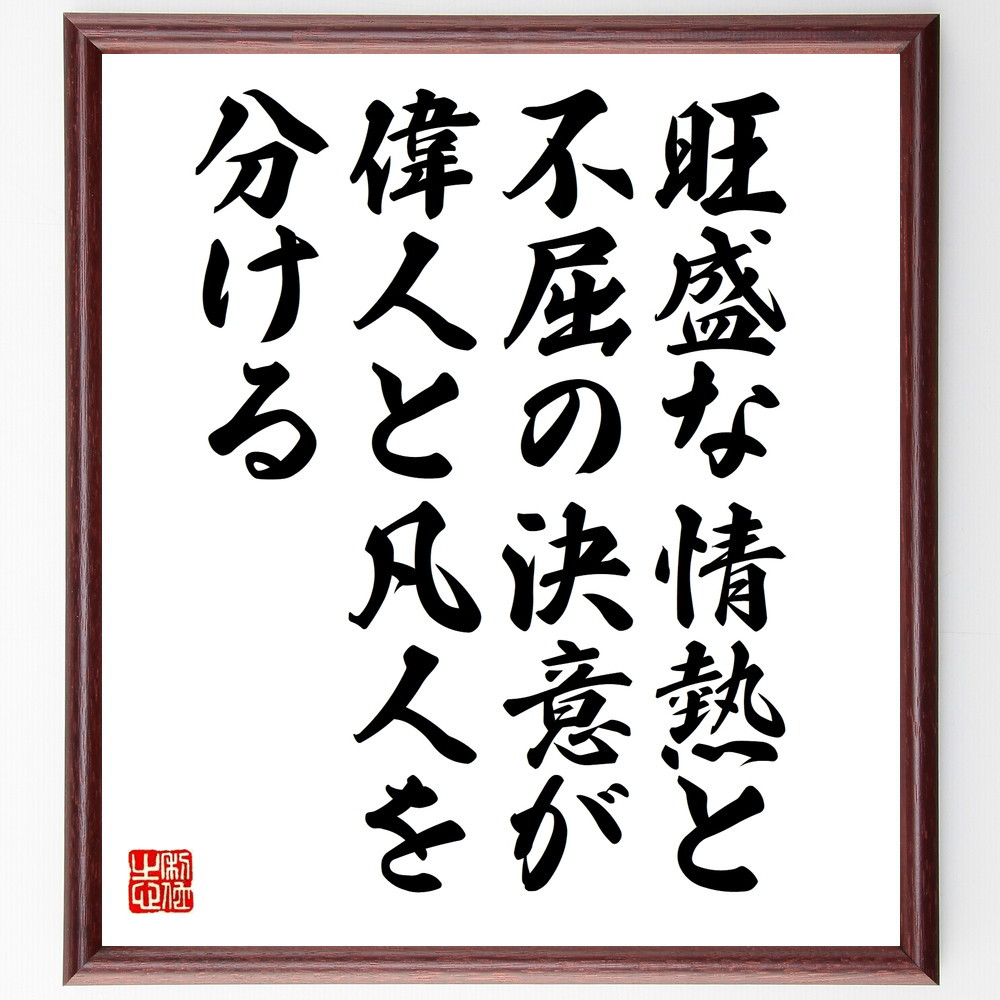 旺盛な情熱と
不屈の決意が
偉人と凡人を
分ける